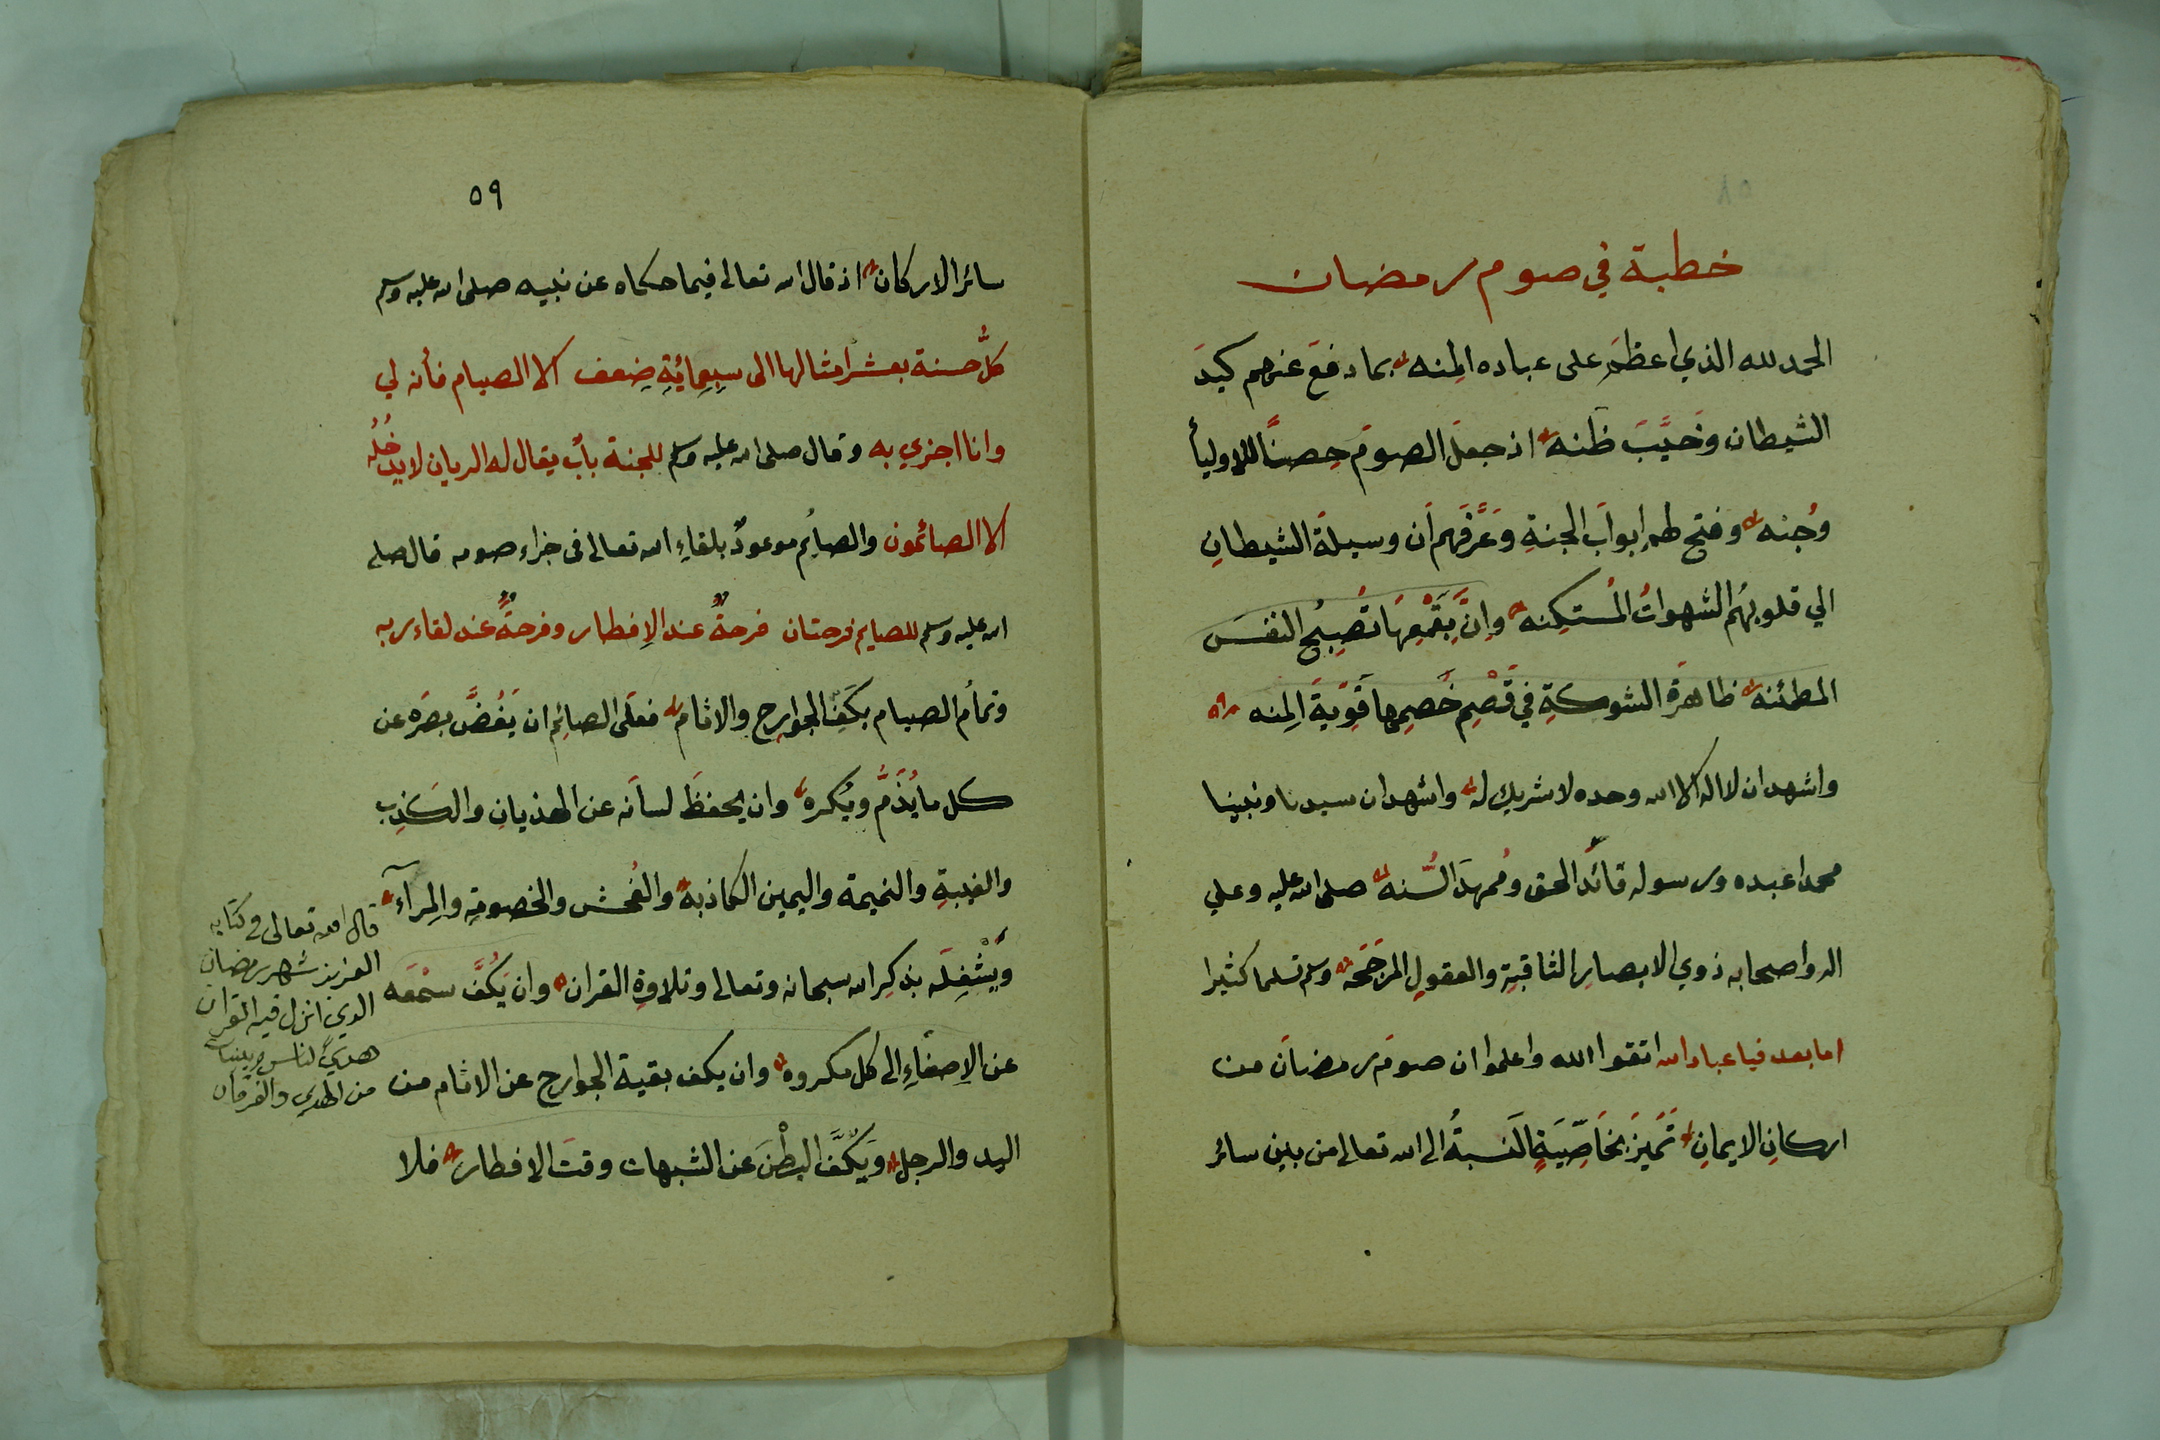 ٥٨
خطبة في صوم رمضان
الحمد لله الذي اعظَم على عباده المِنه بما دفعَ عنهم كيدَ
الشيطان وخَيَّبَ ظنه اذ جعلَ الصومَ حِصنًا للاوليأ
وجُنه وفتح لهم ابوابَ الجنةِ وَعَرَّفَهم اَن وسيلةَ الشيطانِ
الي قلوبهُم الشهواتُ المُستكِنه واِنَّ بِقَمْعِهَا تُصبِحُ النفسَ
المطمئنه ظاهرةَ الشوكةِ في قَصْمِ خَصمِها قَوِيَةَ المِنه
واشهد ان لا اله الا الله وحده لا شريك له واشهد ان سيدنا ونبينا
محمدا عبده ورسوله قائدُ الحق ومُمهدَ السُّنه صلى الله عليه وعلي
اله واصحابه ذوي الابصارِ الثاقبةِ والعقولِ المرجَحَه وسلم تسلما كثيرا
اما بعد فيا عباد الله اتقوا الله واعلموا ان صومَ رمضانَ من
اركانِ الايمانِ تَمَيزَ بخَاصِّيَةِ النسبةُ الى الله تعالى من بين سائر
٥٩
سائر الاركان اذ قال الله تعالى فيما حكاه عن نبيه صلى الله عليه وسلم
كلُّ حسنة بعشرامثالها الى سبعمائِةِ ضِعف الا الصيام فأنه لي
وانا اجزي به وقال صلى الله عليه وسلم للجنة بابٌ يقال له الريان لا يدخُلُه
الا الصائمون والصائِم موعودٌ بلقاءِ الله تعالى في جزاء صومه قال صلى
الله عليه وسلم للصايم فرحتان فرحةٌ عند الاِفطار وفرحةٌ عند لقاء ربه
وتمامُ الصيام بكَفِّ الجوارِح والاثام فعلى الصائِم ان يَغُضَّ بصرَه عن
كل ما يُذَمُّ ويُكره وان يحفظَ لسانَه عن الهذيانِ والكَذِب
والغيبةِ والنميمة واليمين الكاذبة والفُحش والخصومةِ والمِرآء
ويَشْغِلَه بذكِر الله سبحانه وتعالى وتلاوةِ القران وان يَكُفَّ سمْعَه
عن الاِصغْاءِ الى كل مكروه وان يكف بقية الجوارح عن الاثام من
اليد والرجل ويَكُفَّ البطْنَ عن الشبهات وقتَ الافطار فلا
قال الله تعالى في كتابه
العزيز شهر رمضان
الدي انزل فيه القران
هديً لناس وبينات
من الهدي والفرقان